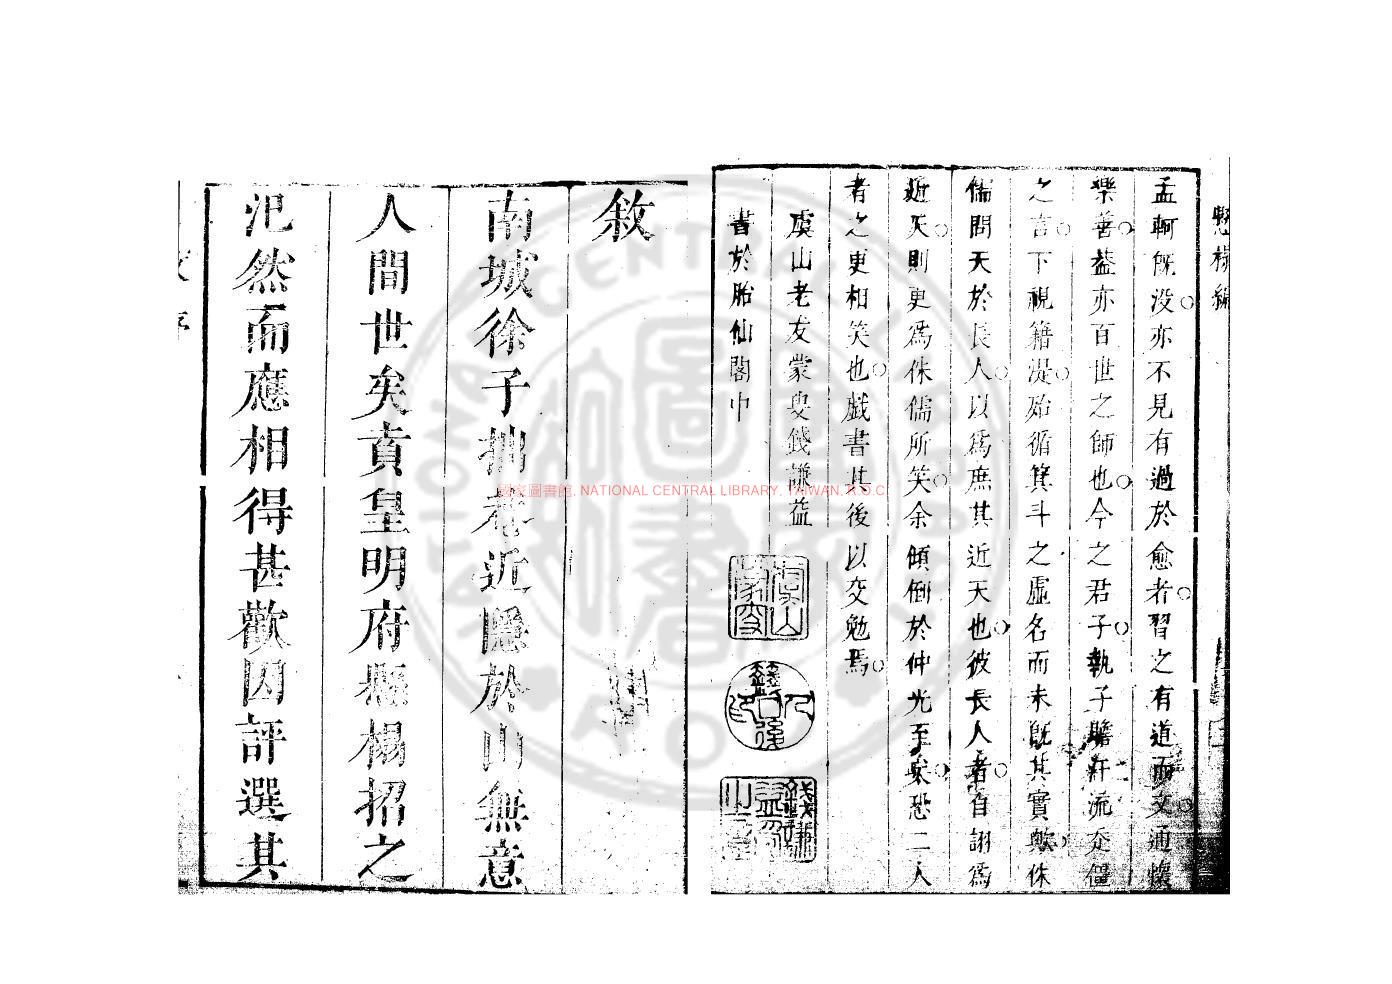 懸榻編
孟軻既没亦不見有過於愈者習之有道而文通懷
樂善葢亦百世之師也今之君子執子瞻汗流走僵
之言下視籍湜殆循箕斗之虛名而未既其實歟侏
儒問天於長人以爲庶其近天也彼長人者自詡爲
近天則更爲侏儒所笑余傾倒於仲光至矣恐二人
者之更相笑也戲書其後以交勉焉
虞山老友蒙叟錢謙益
書於胎仙閣中
虞山蒙叟
敘
南城徐子拙菴近隱於山無意
人間世矣賁皇明府縣榻招之
汜然而應相得甚歡因評選其
國家圖書館, NATIONAL CENTRAL LIBRARY, TAIWAN, R.O.C